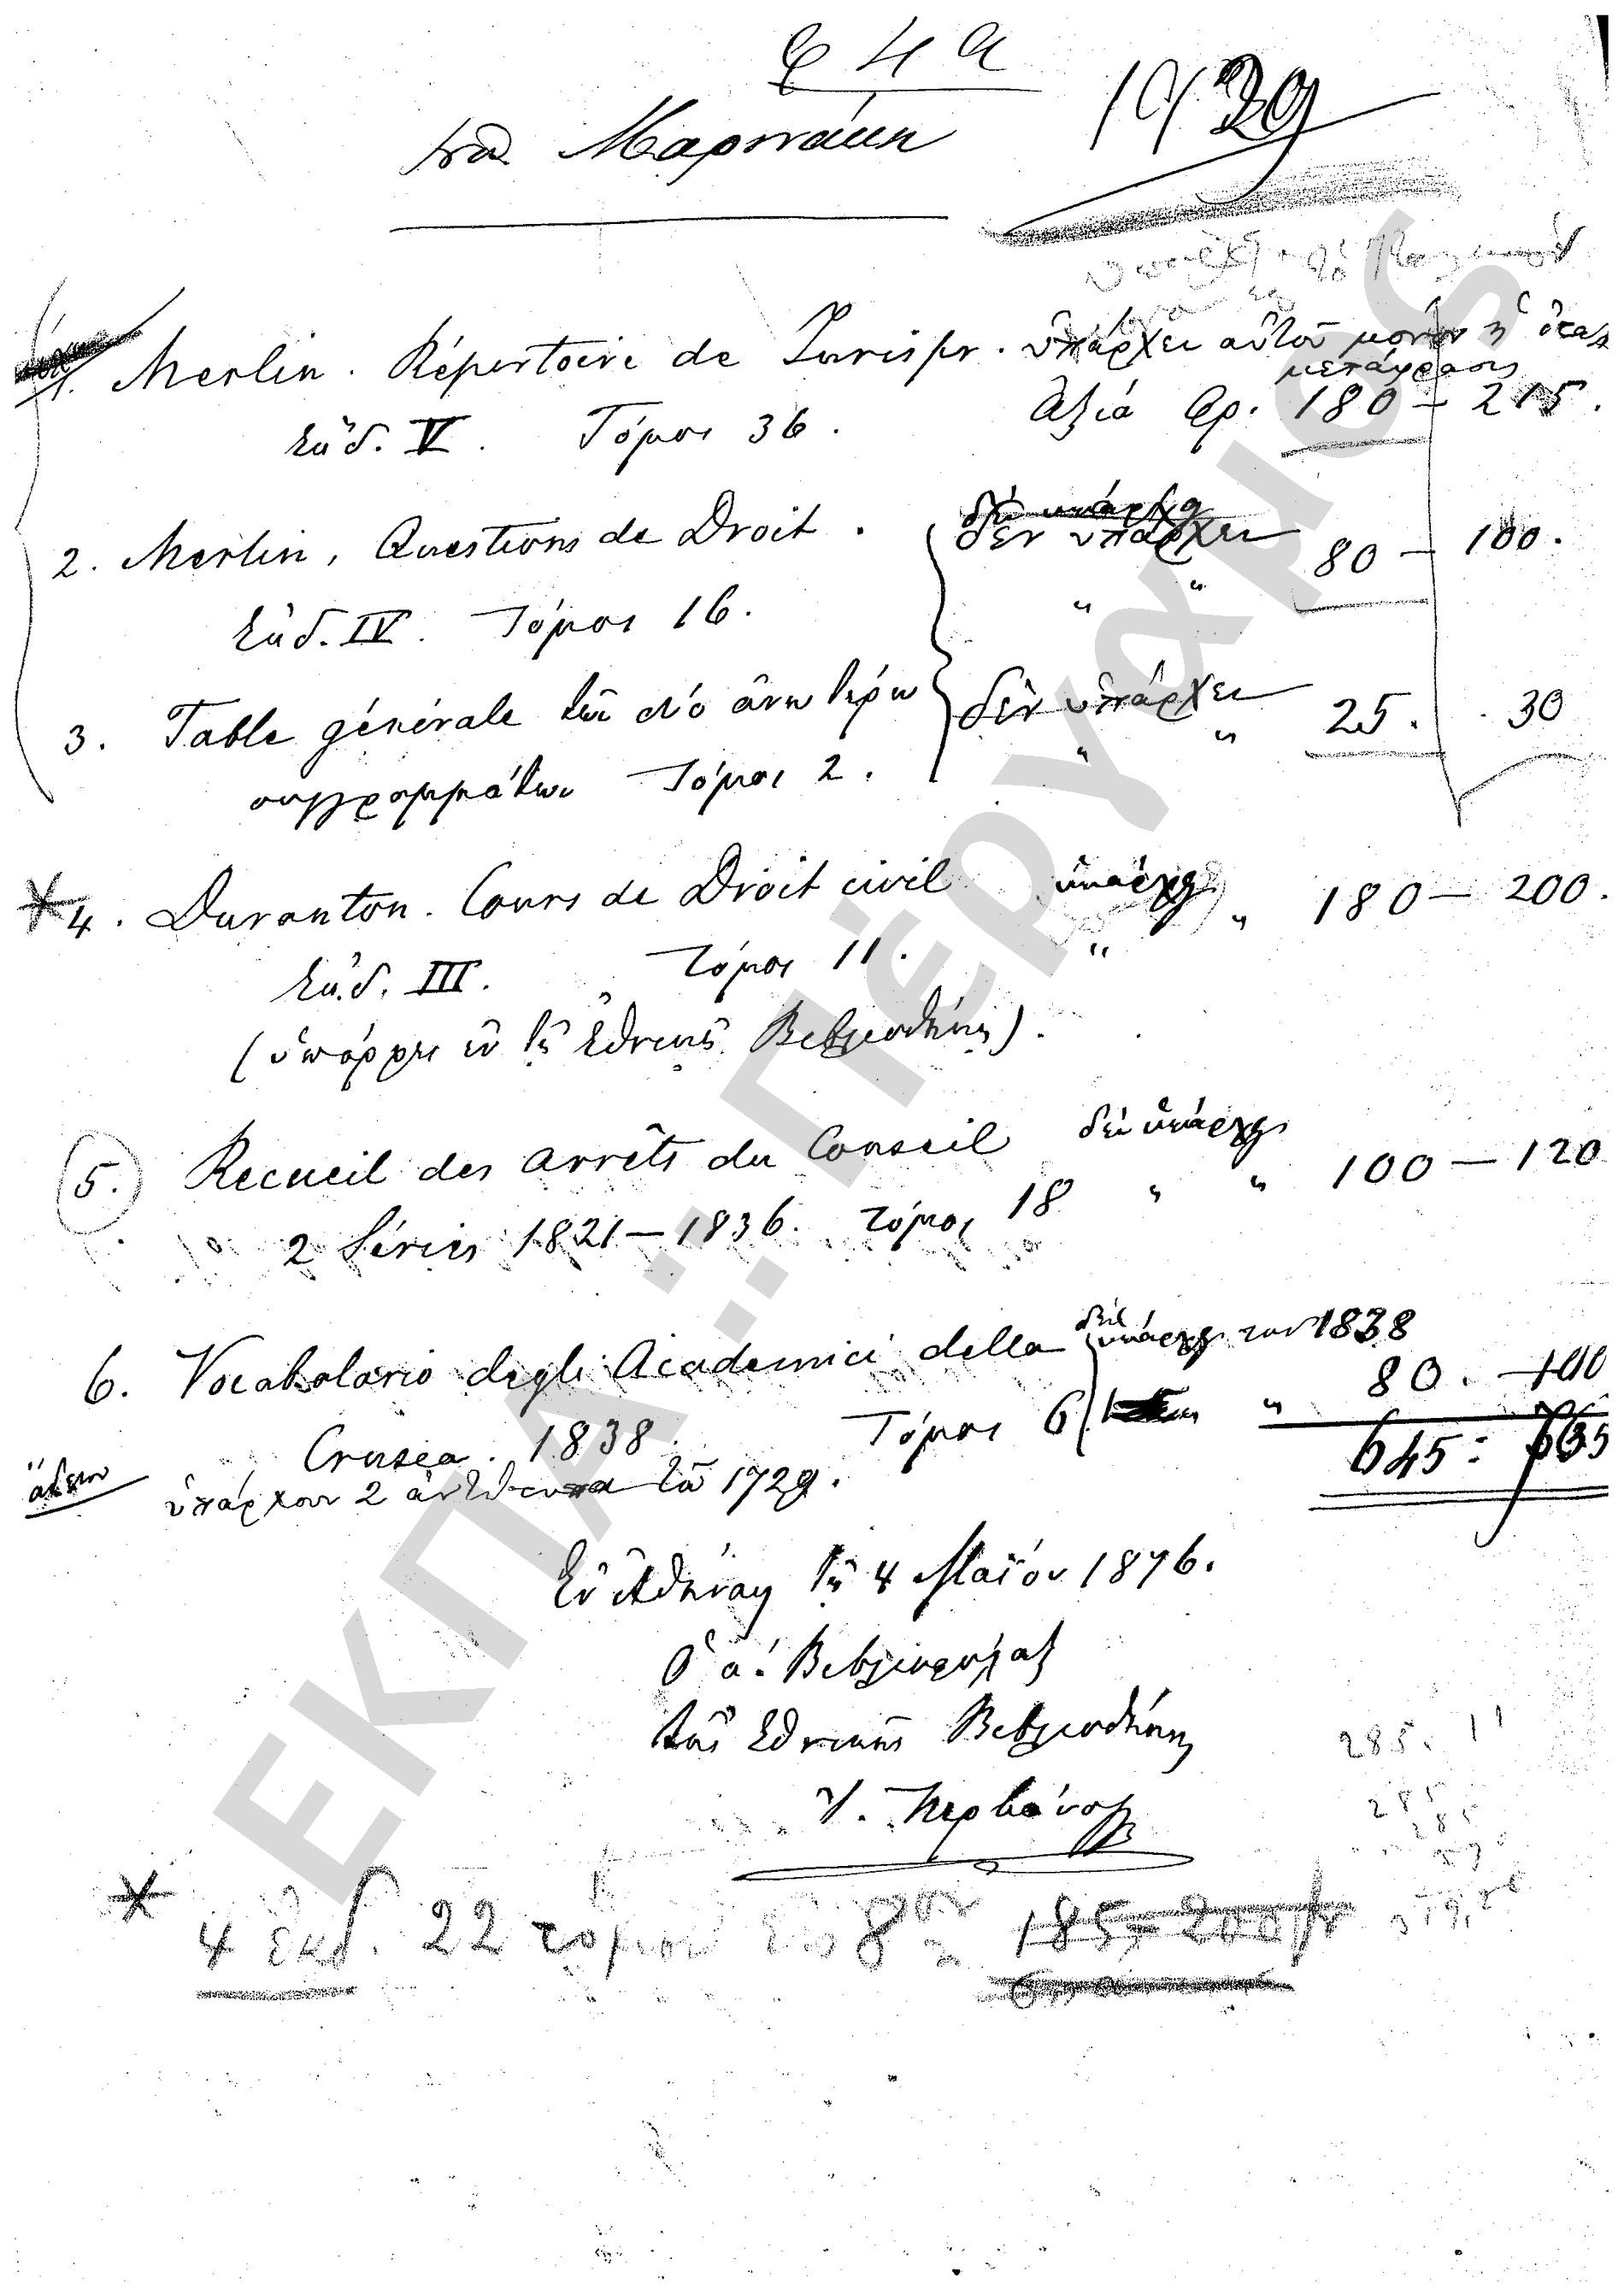 1. Merlin. Répertoire de Jurispr. ὑπάρχει αὐτοῦ μόνον ἡ
μετάφρασις
ἐκδ. V. Τόμοι 36. ἀξία δρ. 180 — 215.
2. Merlin, Questions de Droit. δὲν ὑπάρχει 80 — 100.
ἐκδ. IV. Τόμοι 16. " "
3. Table générale τῶν δύο ἀνωτέρω δὲν ὑπάρχει 25. 30
συγγραμμάτων Τόμοι 2. " "
4. Duranton. Cours de Droit civil ὑπάρχει " 180 — 200.
ἐκδ. III. Τόμοι 11. "
(ὑπάρχει ἐν τῇ Ἐθνικῇ Βιβλιοθήκῃ).
5. Recueil des arrêts du Conseil δὲν ὑπάρχει
2 Séries 1821—1836. τόμοι 18 " " 100 — 120
6. Vocabolario degli Academici della δὲν ὑπάρχει τοῦ 1838
Crusca. 1838. Τόμοι 6 " 80. — 100
ὑπάρχουν 2 ἀντίτυπα τοῦ 1729. 645:
Ἐν Ἀθήναις τῇ 4 Μαΐου 1876.
Ὁ α΄. Βιβλιοφύλαξ
τῆς Ἐθνικῆς Βιβλιοθήκης
4 ἐκδ. 22 τόμοι 8ον 185 — 200 fr
ΕΚΠΑ: Πέργαμος